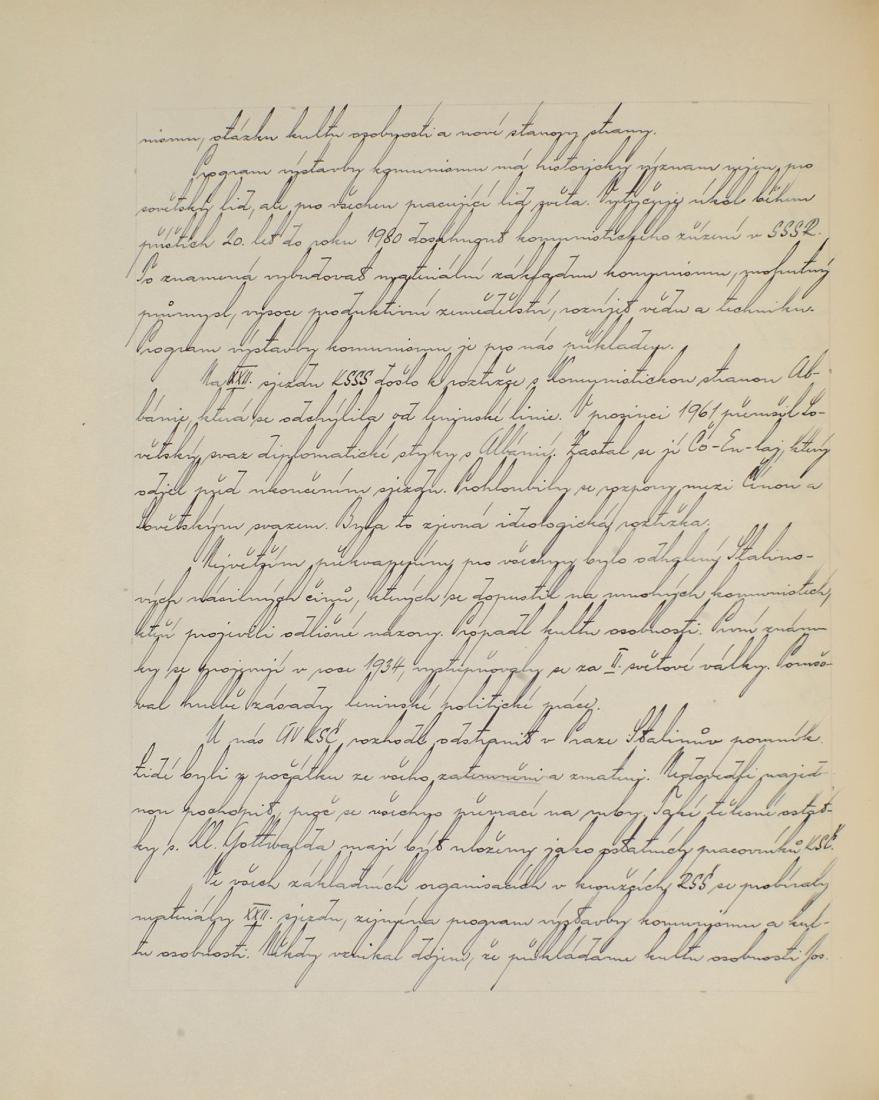 nismu, otázku kultu osobnosti a nové stanovy strany.
Program výstavby komunismu má historický význam nejen pro
sovětský lid, ale pro všechen pracující lid světa. Vytyčuje úkol během
příštích 20. let do roku 1980 dosáhnout komunistického zřízení v SSSR.
To znamená vybudovat materiální základnu komunismu, mohutný
průmysl, vysoce produktivní zemědělství, rozvíjet vědu a techniku.
Program výstavby komunismu je pro nás příkladem.
Na XXII. sjezdu KSSS došlo k roztržce s Komunistickou stranou Al-
bánie, která se odchýlila od leninské linie. V prosinci 1961 přerušil So-
větský svaz diplomatické styky s Albánií. Zastal se jí Ču-En-laj, který
odjel před ukončením sjezdu. Prohloubily se rozpory mezi Čínou a
Sovětským svazem. Byla to zjevná ideologická roztržka.
Největším překvapením pro všechny bylo odhalení Stalino-
vých násilných činů, kterých se dopustil na mnohých komunistech,
kteří projevili odlišné názory. Propadl kultu osobnosti. První znám-
ky se projevují v roce 1934, vystupňovaly se za II. světové války. Porušo-
val hrubě zásady leninské politické práce.
U nás ÚV KSČ rozhodl odstranit v Praze Stalinův pomník.
Lidé byli z počátku ze všeho zatemněni a zmateni. Nedovedli najed-
nou pochopit, proč se všechno převrací na ruby. Také tělesné ostat-
ky s. Kl. Gottwalda mají být uloženy jako ostatních pracovníků KSČ.
Ve všech základních organisacích v kroužcích RSŠ se probíraly
materiály XXII. sjezdu, zejména program výstavby komunismu a kul-
tu osobnosti. Někdy vznikal dojem, že přikládáme kultu osobnosti Jos.